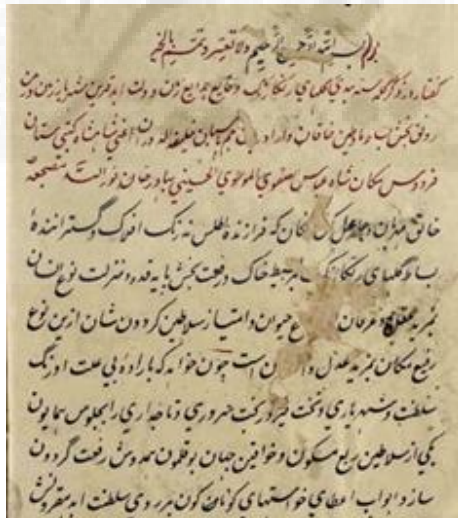 بسم الله الرحمن الرحیم و لا تعسر و تمم بالخیر
گفتار در ذکر دسته بندی گلهای رنگارنگ وقایع بدایع زمن دولت ابد قرین شهریار زمین و زمن
رونق بخش ساحت ماء و طین خاقان دارا دربان خلیفه الرحمن اعنی شاهنشاه گیتی ستان
فردوس مکان شاه عباس الصفوی الموسوی الحسینی بهادر خان نور الله مضجعه
خالق جهان و جاعل کن فکان که فرازنده اطلس نه رنگ افلاک و گستراننده
بساط گلهای رنگارنگ بر بسیط خاک و رفعت بخش پایه قدر و منزلت نوع انسان
بمزید عقل و عرفان حیوان و امتیاز سلاطین گردون شان ازین نوع
رفیع مکان بمزید عدل و است چون خواهد که باراده بی علت اورنگ
سلطنت و شهریاری و تخت فیروز بخت سروری و تاجداری را بجلوس همایون
یکی از سلاطین ربع مسکون و خواقین جهان بوقلمون همدوش رفعت گردون
سازد ابواب اعطای خواستهای گوناگون بر روی سلطنت ابد مقرونش